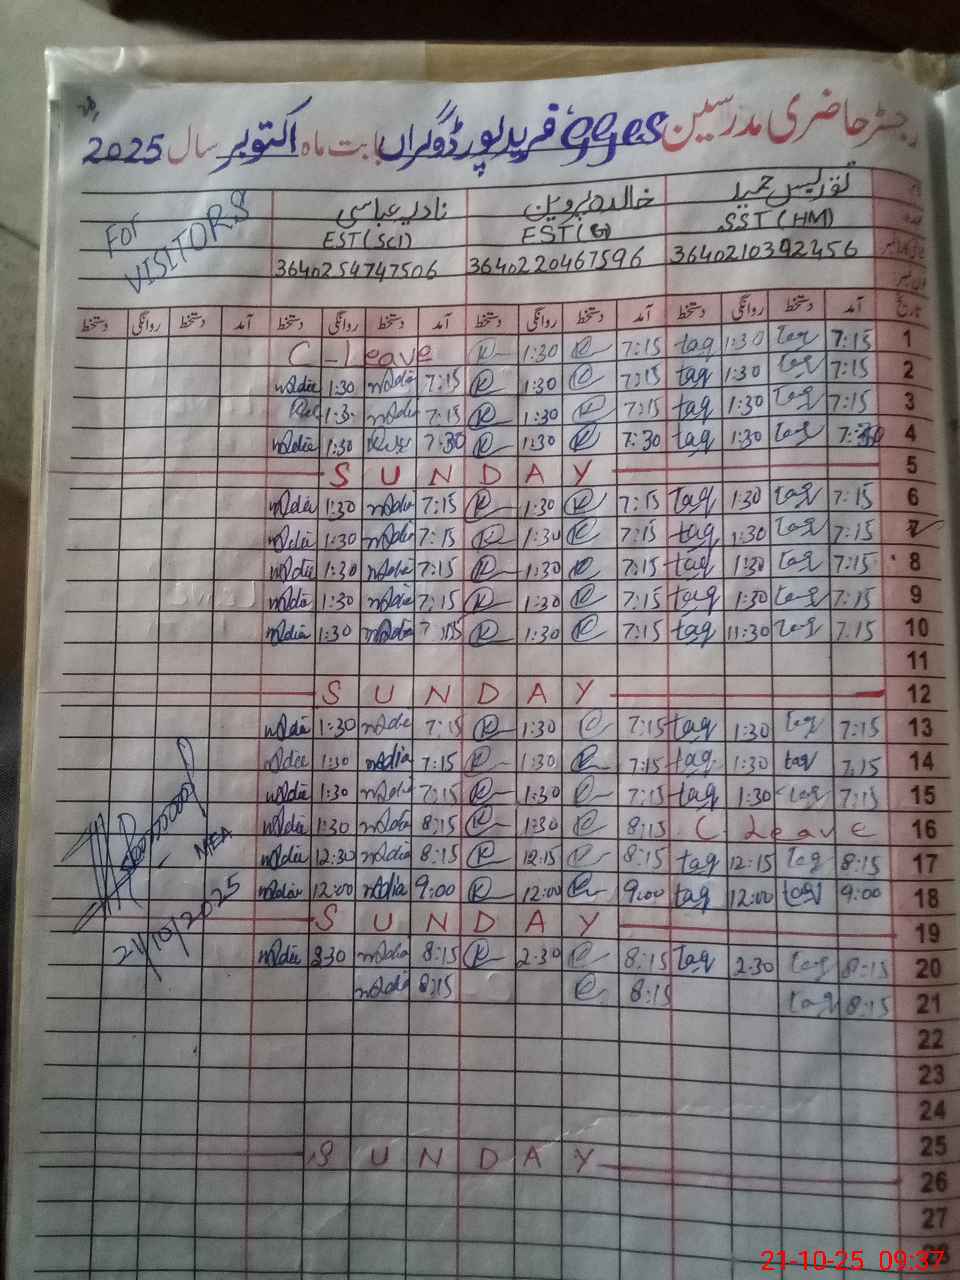 رجسٹر حاضری مدرسین GGES فرید پور ڈوگراں بابت ماہ اکتوبر سال 2025
تقدیس حمید خالدہ پروین نادیہ عباسی
SST (HM) EST (G) EST (Sci)
3640210392456 3640220467596 3640254747506
For VISITORS
تاریخ آمد دستخط روانگی دستخط آمد دستخط روانگی دستخط آمد دستخط روانگی دستخط آمد دستخط روانگی دستخط
1 7:15 tag 1:30 tag 7:15 K 1:30 K C-Leave
2 7:15 tag 1:30 tag 7:15 K 1:30 K 7:15 nadia 1:30 nadia
3 7:15 tag 1:30 tag 7:15 K 1:30 K 7:15 nadia 1:3
4 7:30 tag 1:30 tag 7:30 K 1:30 K 7:30 1:30 nadia
5 SUNDAY
6 7:15 tag 1:30 tag 7:15 K 1:30 K 7:15 nadia 1:30 nadia
7 7:15 tag 1:30 tag 7:15 K 1:30 K 7:15 nadia 1:30 nadia
8 7:15 tag 1:30 tag 7:15 K 1:30 K 7:15 nadia 1:30 nadia
9 7:15 tag 1:30 tag 7:15 K 1:30 K 7:15 nadia 1:30 nadia
10 7:15 tag 11:30 tag 7:15 K 1:30 K 7:15 nadia 1:30 nadia
11
12 SUNDAY
13 7:15 tag 1:30 tag 7:15 K 1:30 K 7:15 nadia 1:30 nadia
14 7:15 tag 1:30 tag 7:15 K 1:30 K 7:15 nadia 1:30 nadia
15 7:15 tag 1:30 tag 7:15 K 1:30 K 7:15 nadia 1:30 nadia
16 C-Leave 8:15 K 1:30 K 8:15 nadia 1:30 nadia
17 8:15 tag 12:15 tag 8:15 K 12:15 K 8:15 nadia 12:30 nadia
18 9:00 tag 12:00 tag 9:00 K 12:00 K 9:00 nadia 12:00 nadia
19 SUNDAY
20 8:15 tag 2:30 tag 8:15 K 2:30 K 8:15 nadia 2:30 nadia
21 8:15 tag 8:15 K 8:15 nadia
22
23
24
25
26 SUNDAY
27
28
MEA
21/10/2025
21-10-25 09:37